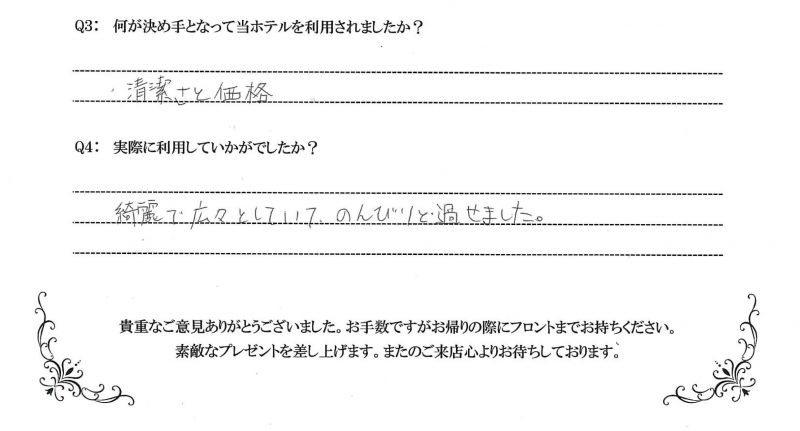 Q3: 何が決め手となって当ホテルを利用されましたか？
・清潔さと価格
Q4: 実際に利用していかがでしたか？
綺麗で広々としていて、のんびりと過せました。
貴重なご意見ありがとうございました。お手数ですがお帰りの際にフロントまでお持ちください。
素敵なプレゼントを差し上げます。またのご来店心よりお待ちしております。